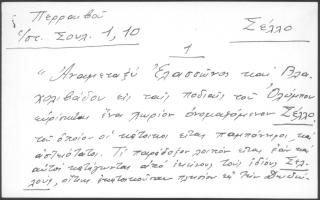 Περραιβοῦ
ἱστ. Σουλ. 1, 10
Σέλλο
1
"Ἀναμεταξὺ Ἐλασσῶνος καὶ Βλα-
χολιβάδου εἰς τοὺς πόδας τοῦ Ὀλύμπου
εὑρίσκεται ἕνα χωρίον ὀνομαζόμενον Σέλλο
τοῦ ὁποίου οἱ κάτοικοι εἶναι παμπόνηροι καὶ
ἀστειότατοι. Τί παράδοξον λοιπὸν εἶναι ἐὰν καὶ
αὐτοὶ κατάγωνται ἀπὸ ἐκείνους τοὺς ἰδίους Σελ-
λούς, οἵτινες ἐκατοικοῦσαν πλησίον εἰς τὴν Δωδώ-